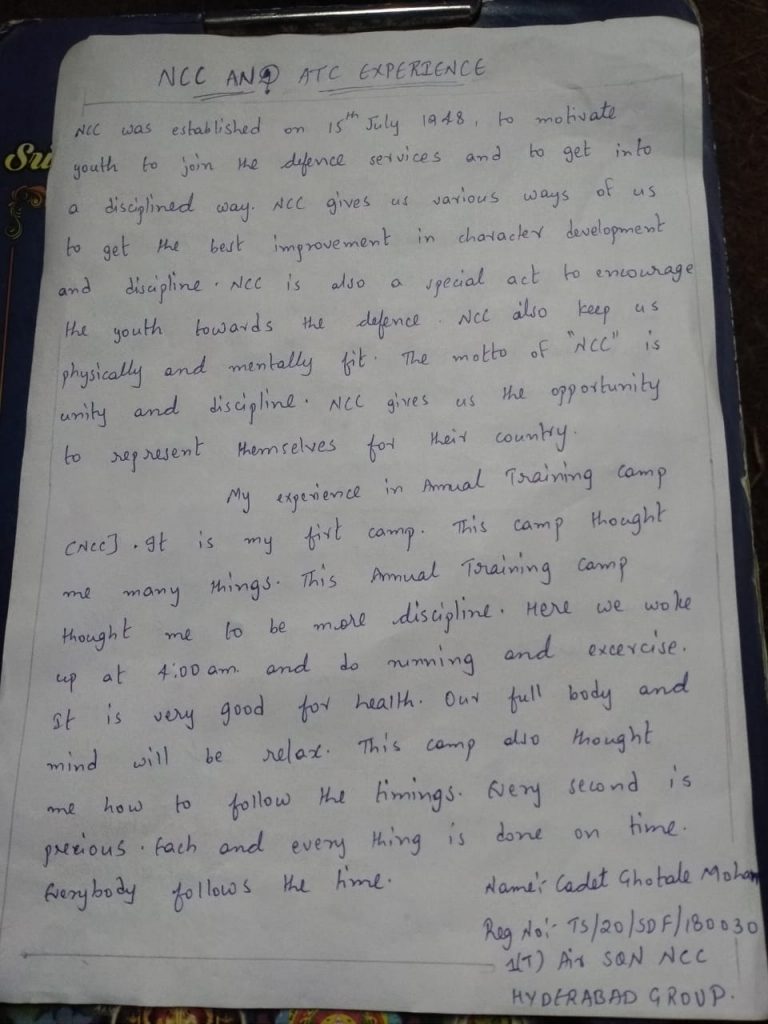 NCC AND ATC EXPERIENCE
NCC was established on 15th July 1948, to motivate
youth to join the defence services and to get into
a disciplined way. NCC gives us various ways of us
to get the best improvement in character development
and discipline. NCC is also a special act to encourage
the youth towards the defence. NCC also keep us
physically and mentally fit. The motto of "NCC" is
unity and discipline. NCC gives us the opportunity
to represent themselves for their country.
My experience in Annual Training camp
[NCC]. It is my firt camp. This camp thought
me many things. This Annual Training camp
thought me to be more discipline. Here we woke
up at 4:00 am and do running and excercise.
It is very good for health. Our full body and
mind will be relax. This camp also thought
me how to follow the timings. Every second is
precious. Each and every thing is done on time.
Everybody follows the time.
Name:- Cadet Ghotale Mohan
Reg No:- TS/20/SDF/180030
1(T) Air SQN NCC
HYDERABAD GROUP.
Sri